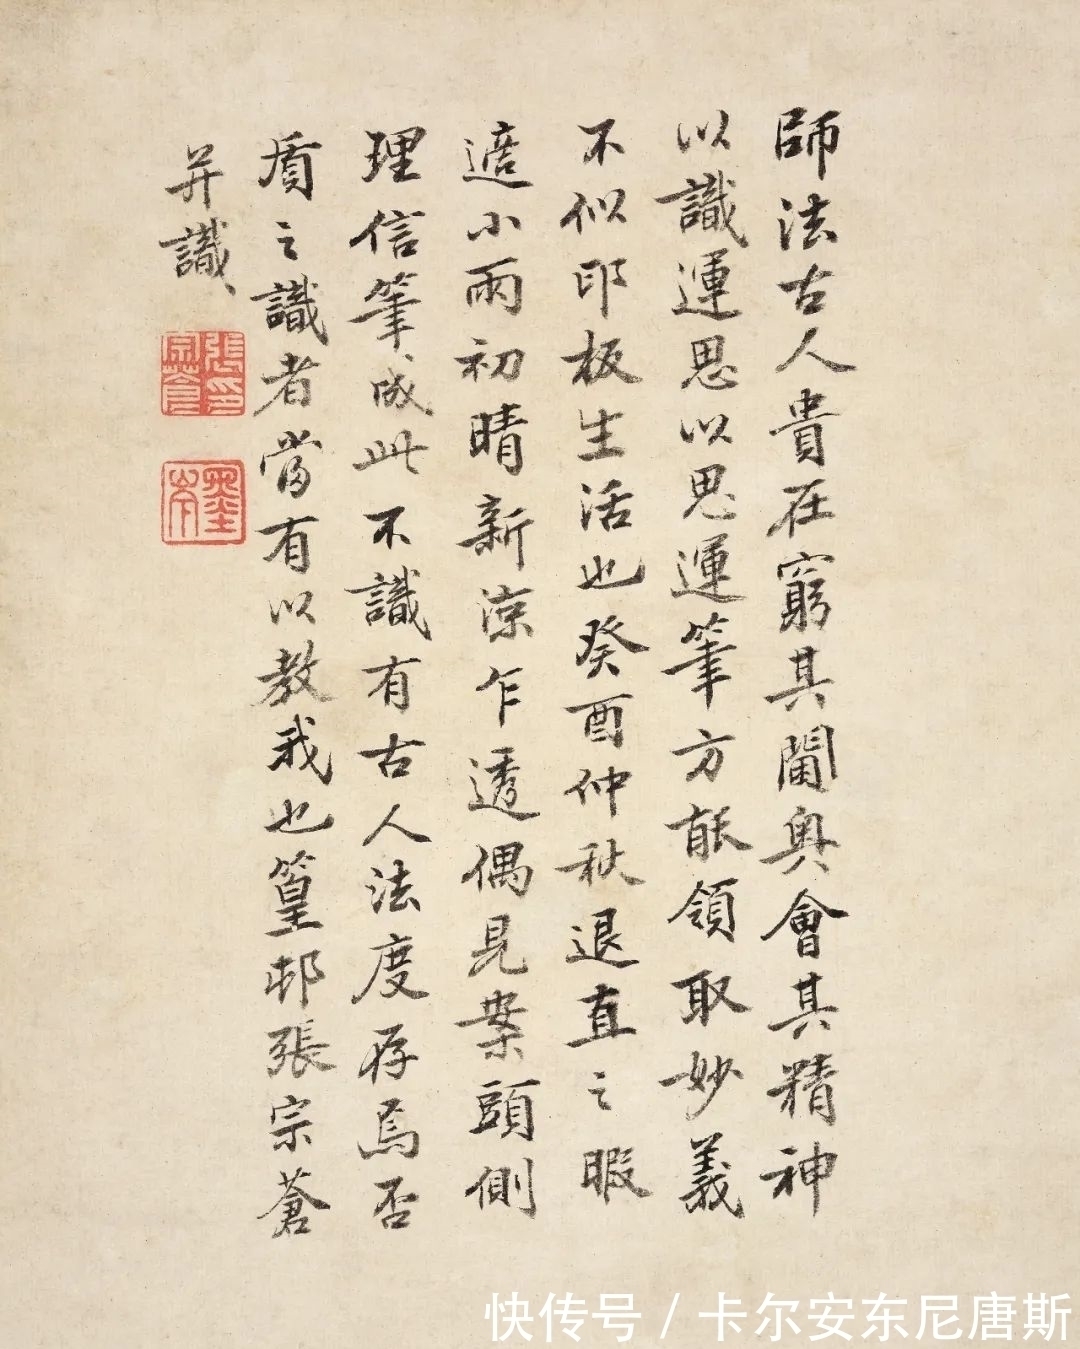 師法古人貴在窮其閫奧會其精神
以識運思以思運筆方能領取妙義
不似印板生活也癸酉仲秋退直之暇
適小雨初晴新涼乍透偶見案頭側
理信筆成此不識有古人法度存焉否
質之識者當有以教我也篁邨張宗蒼
并識
張印宗蒼
墨岑
快传号 / 卡尔安东尼唐斯